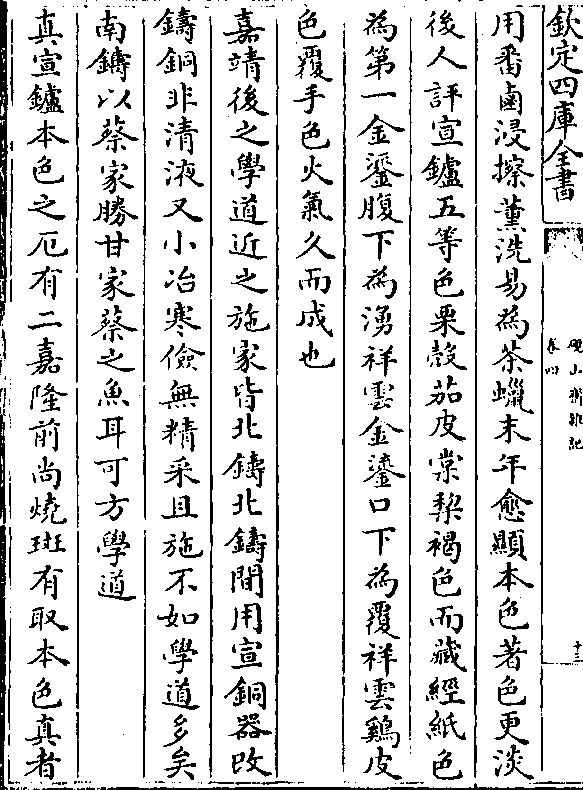 欽定四庫全書
硯山齋雜記
卷四
十三
用番鹵浸擦薰洗易為茶蠟末年愈顯本色著色更淡
後人評宣鑪五等色栗殼茄皮棠棃褐色而藏經紙色
為第一金鎏腹下為湧祥雲金鎏口下為覆祥雲鷄皮
色覆手色火氣久而成也
嘉靖後之學道近之施家皆北鑄北鑄間用宣銅器改
鑄銅非清液又小冶寒儉無精采且施不如學道多矣
南鑄以蔡家勝甘家蔡之魚耳可方學道
真宣鑪本色之厄有二嘉隆前尚燒斑有取本色真者